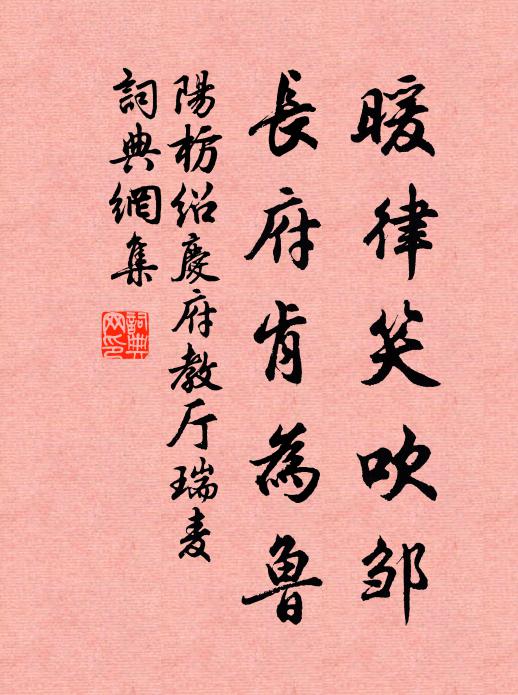 暖律笑吹邹
長府肯為魯
陽枋绍慶府教厅瑞麦
詞典網集
詞典網印